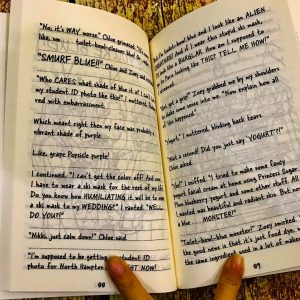 "No, it's WAY worse" Chloe
toilet-bowl-cleaner blue
"SMURF BLUE!!" Chloe and Zoey
"Who CARES what shade of blue it is! I can't
my student ID photo like this!" I muttered,
red with embarrassment.
Which meant right then my face was probably a
vibrant shade of purple.
Like, grape Popsicle purple!
I continued. "I can't get the color off! And now
I have to wear a ski mask for the rest of my life.
Do you know how HUMILIATING it will be to wear
a ski mask to my WEDDING?" I ranted. "WELL,
DO YOU?!"
"Nikki, just calm down!" Chloe said.
"I'm supposed to be getting student ID
photo for North Hampton RIGHT NOW!
88
toilet-bowl-blue and I look like an ALIEN
And if I wear this stupid ski mask,
look like a BURGLAR. How am I supposed to
looking like THIS? TELL ME HOW!"
Zoey grabbed me by my shoulders
some sense into me. "Now explain how
all of this happened"
I muttered, blinking back tears.
a second! Did you just say YOGURT?!"
Chloe asked.
I sniffed. "I tried to make some fancy
facial cream at home using Princess Sugar
blueberry yogurt and some other stuff. All
I wanted was beautiful and radiant skin. But
a MONSTER!"
"Toilet-bowl-blue monster!" Zoey
the good news is that it's just food dye.
the same ingredient used in a lot of
89